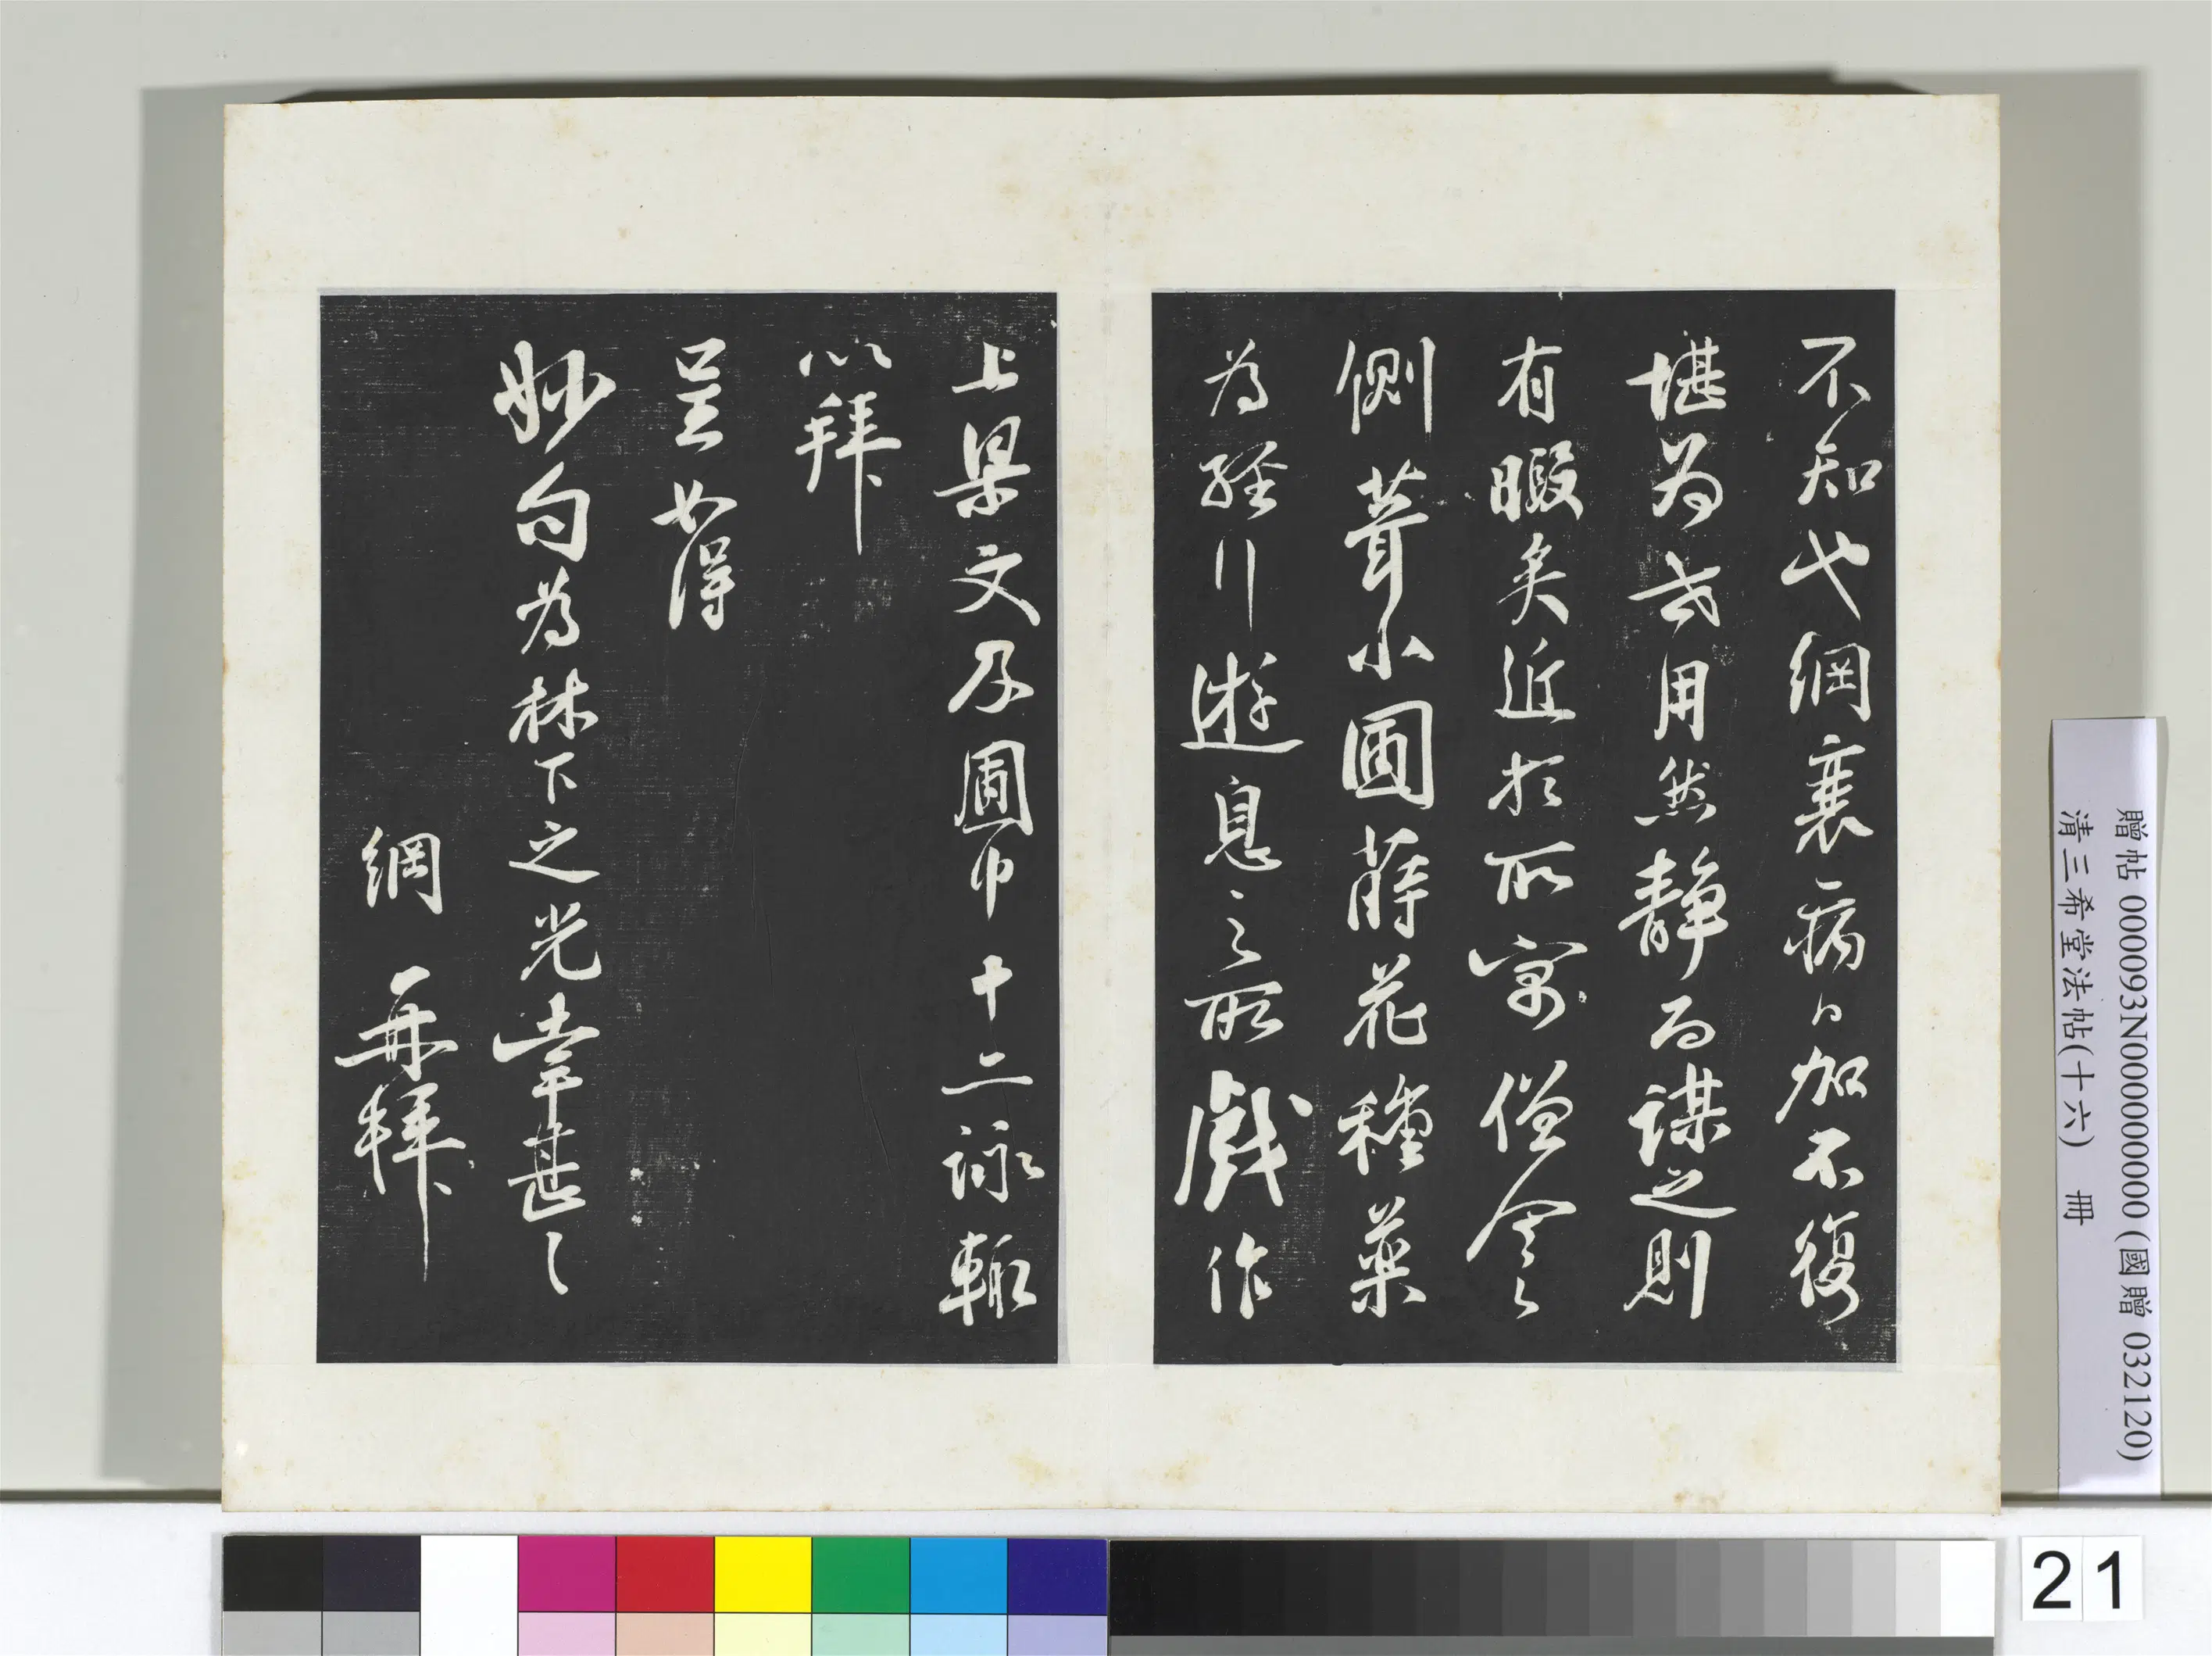 不知也綱衰病日加不復
堪為世用然靜而謀之則
有暇矣近於所寓僧舍之
側葺小圃蒔花種藥
為經行遊息之所戲作
上梁文及圃中十二詠輒
以拜
呈如得
妙句為林下之光幸甚之
綱再拜
贈帖 000093N000000000 (國贈 032120)
清三希堂法帖(十六) 冊
21